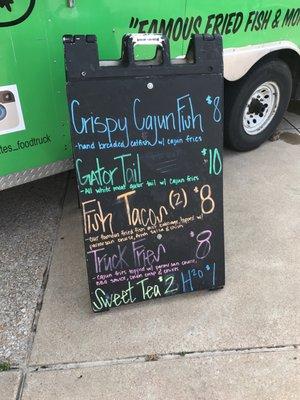 "FAMOUS FRIED FISH & MO
tes_foodtruck
Crispy Cajun Fish $8
-hand breaded catfish w/ cajun fries
Gator Tail $10
-All white meat gator tail w/ cajun fries
Fish Tacos (2) $8
-our famous fried fish
Truck Fries $8
-cajun fries topped w/
BBQ sauce,
Sweet Tea $2 H2O $1